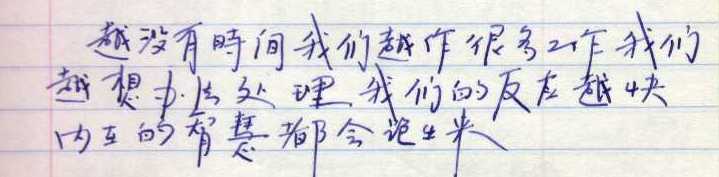 越没有時间我们越作很多工作我们
越想办法处理我们的反应越快
内在的智慧都会跑出来